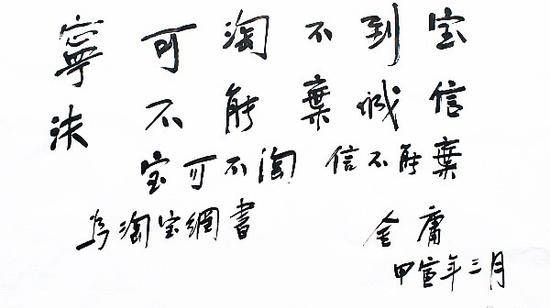 寧可淘不到宝
決不能棄诚信
宝可不淘 信不能棄
为淘宝網書 金庸
甲寅年三月